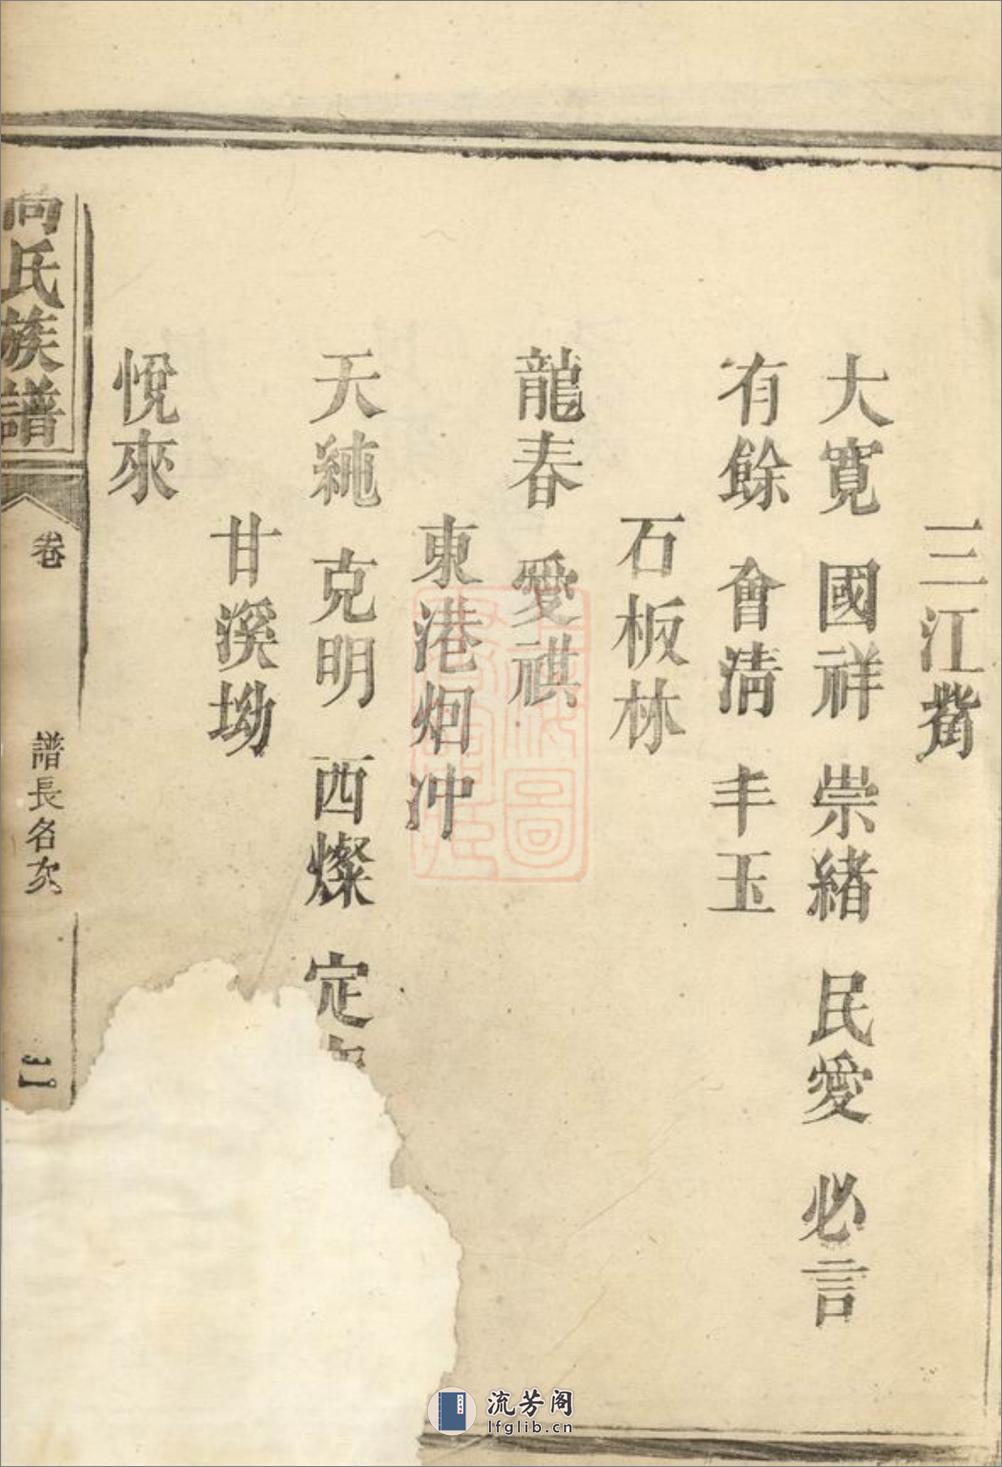 三江觜
大寬 國祥 崇緒 民愛 必言
有餘 會清 丰玉
石板林
龍春 愛祺
東港烟冲
天純 克明 西燦 定
甘溪坳
悅來
向氏族譜
卷
譜長名次
二
流芳阁
lfglib.cn